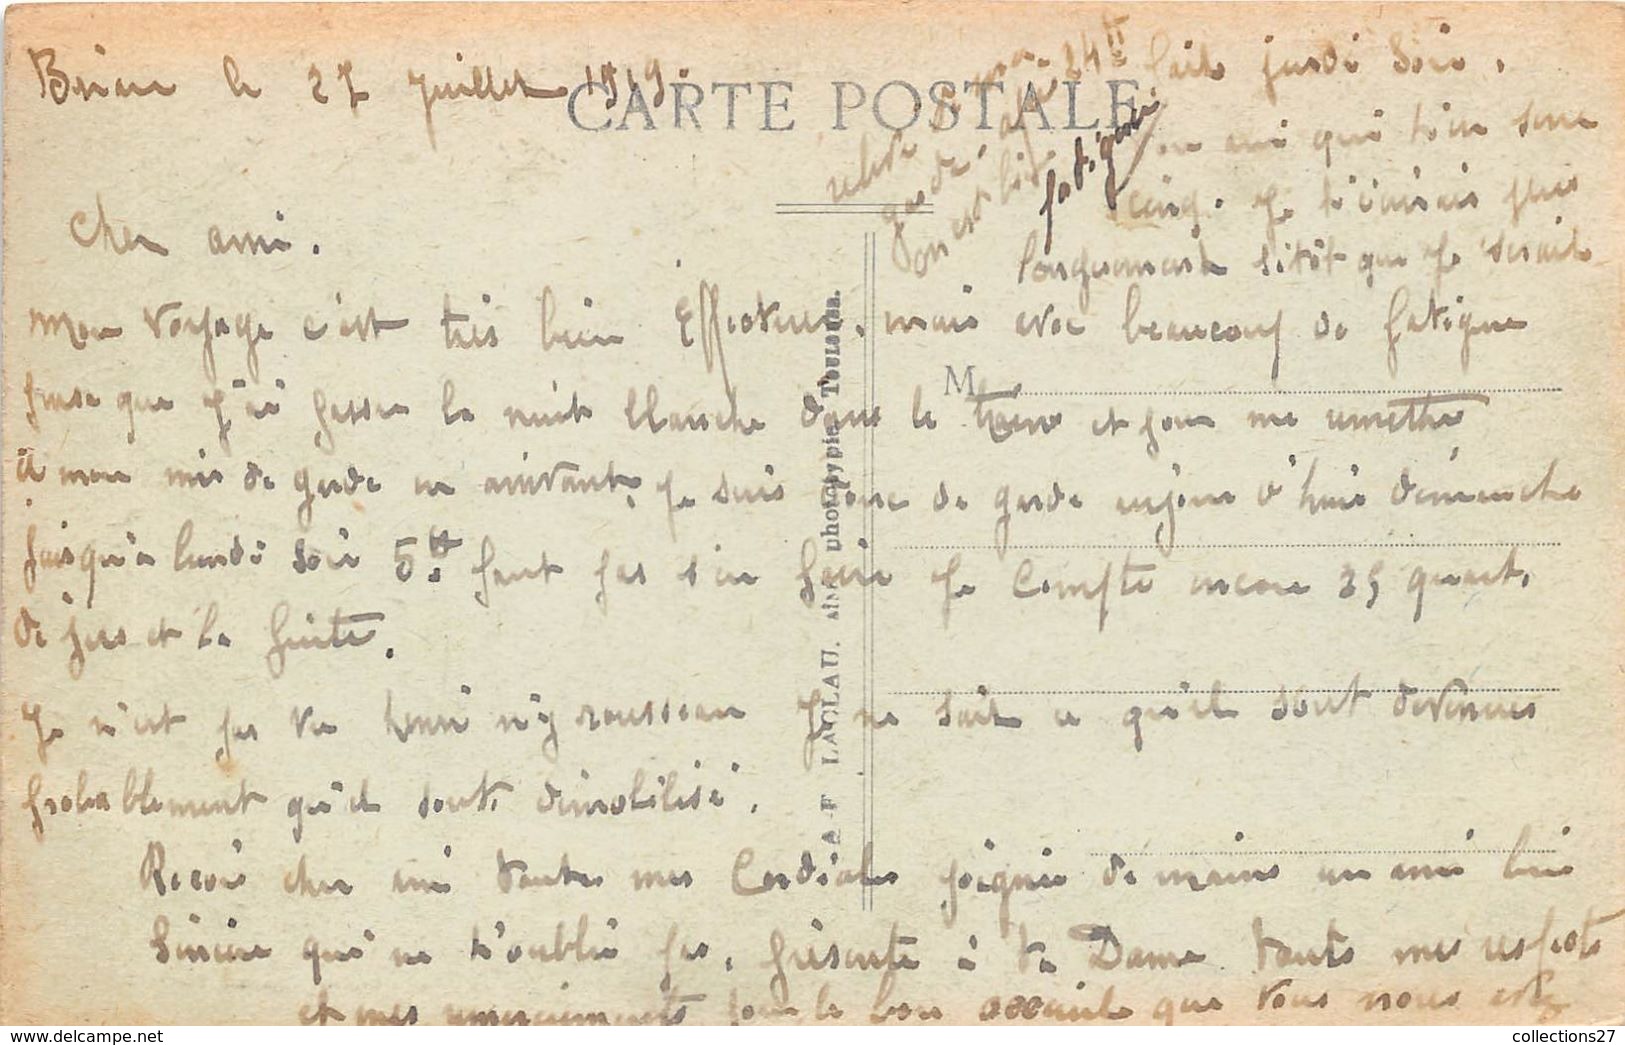 le 27 Juillet 1919.
CARTE POSTALE
Cher ami.
Mon voyage c'est très bien Effectuer. mais avec beaucoup de fatigue
que j'ai passer la nuit blanche dans le train et pour me remettre
à mon mis de garde en arrivant, je suis donc de garde aujour d'hui dimanche
jusqu'à lundi soir 5h faut pas s'en faire je Compte encore 35 quart,
de jus et la fuite.
Je n'est pas vu henri n'y rousseau Je ne sait ce qu'il sont devenues
probablement qu'il sont dimobilisé.
Recois cher ami toutes mes Cordiales poignie de mains un ami bien
Sincère qui ne t'oublie pas. présente à ta Dame touts mes respects
et mes remerciements pour le bon accueil que vous nous avez
fait jeudi soir.
ami qui t'en sere
cinq. Je t'écrirais plus
longuement sitôt que je serait
garde
on est bien fatiguer
M
A. F. LACLAU. phototypie Toulouse.
collections27